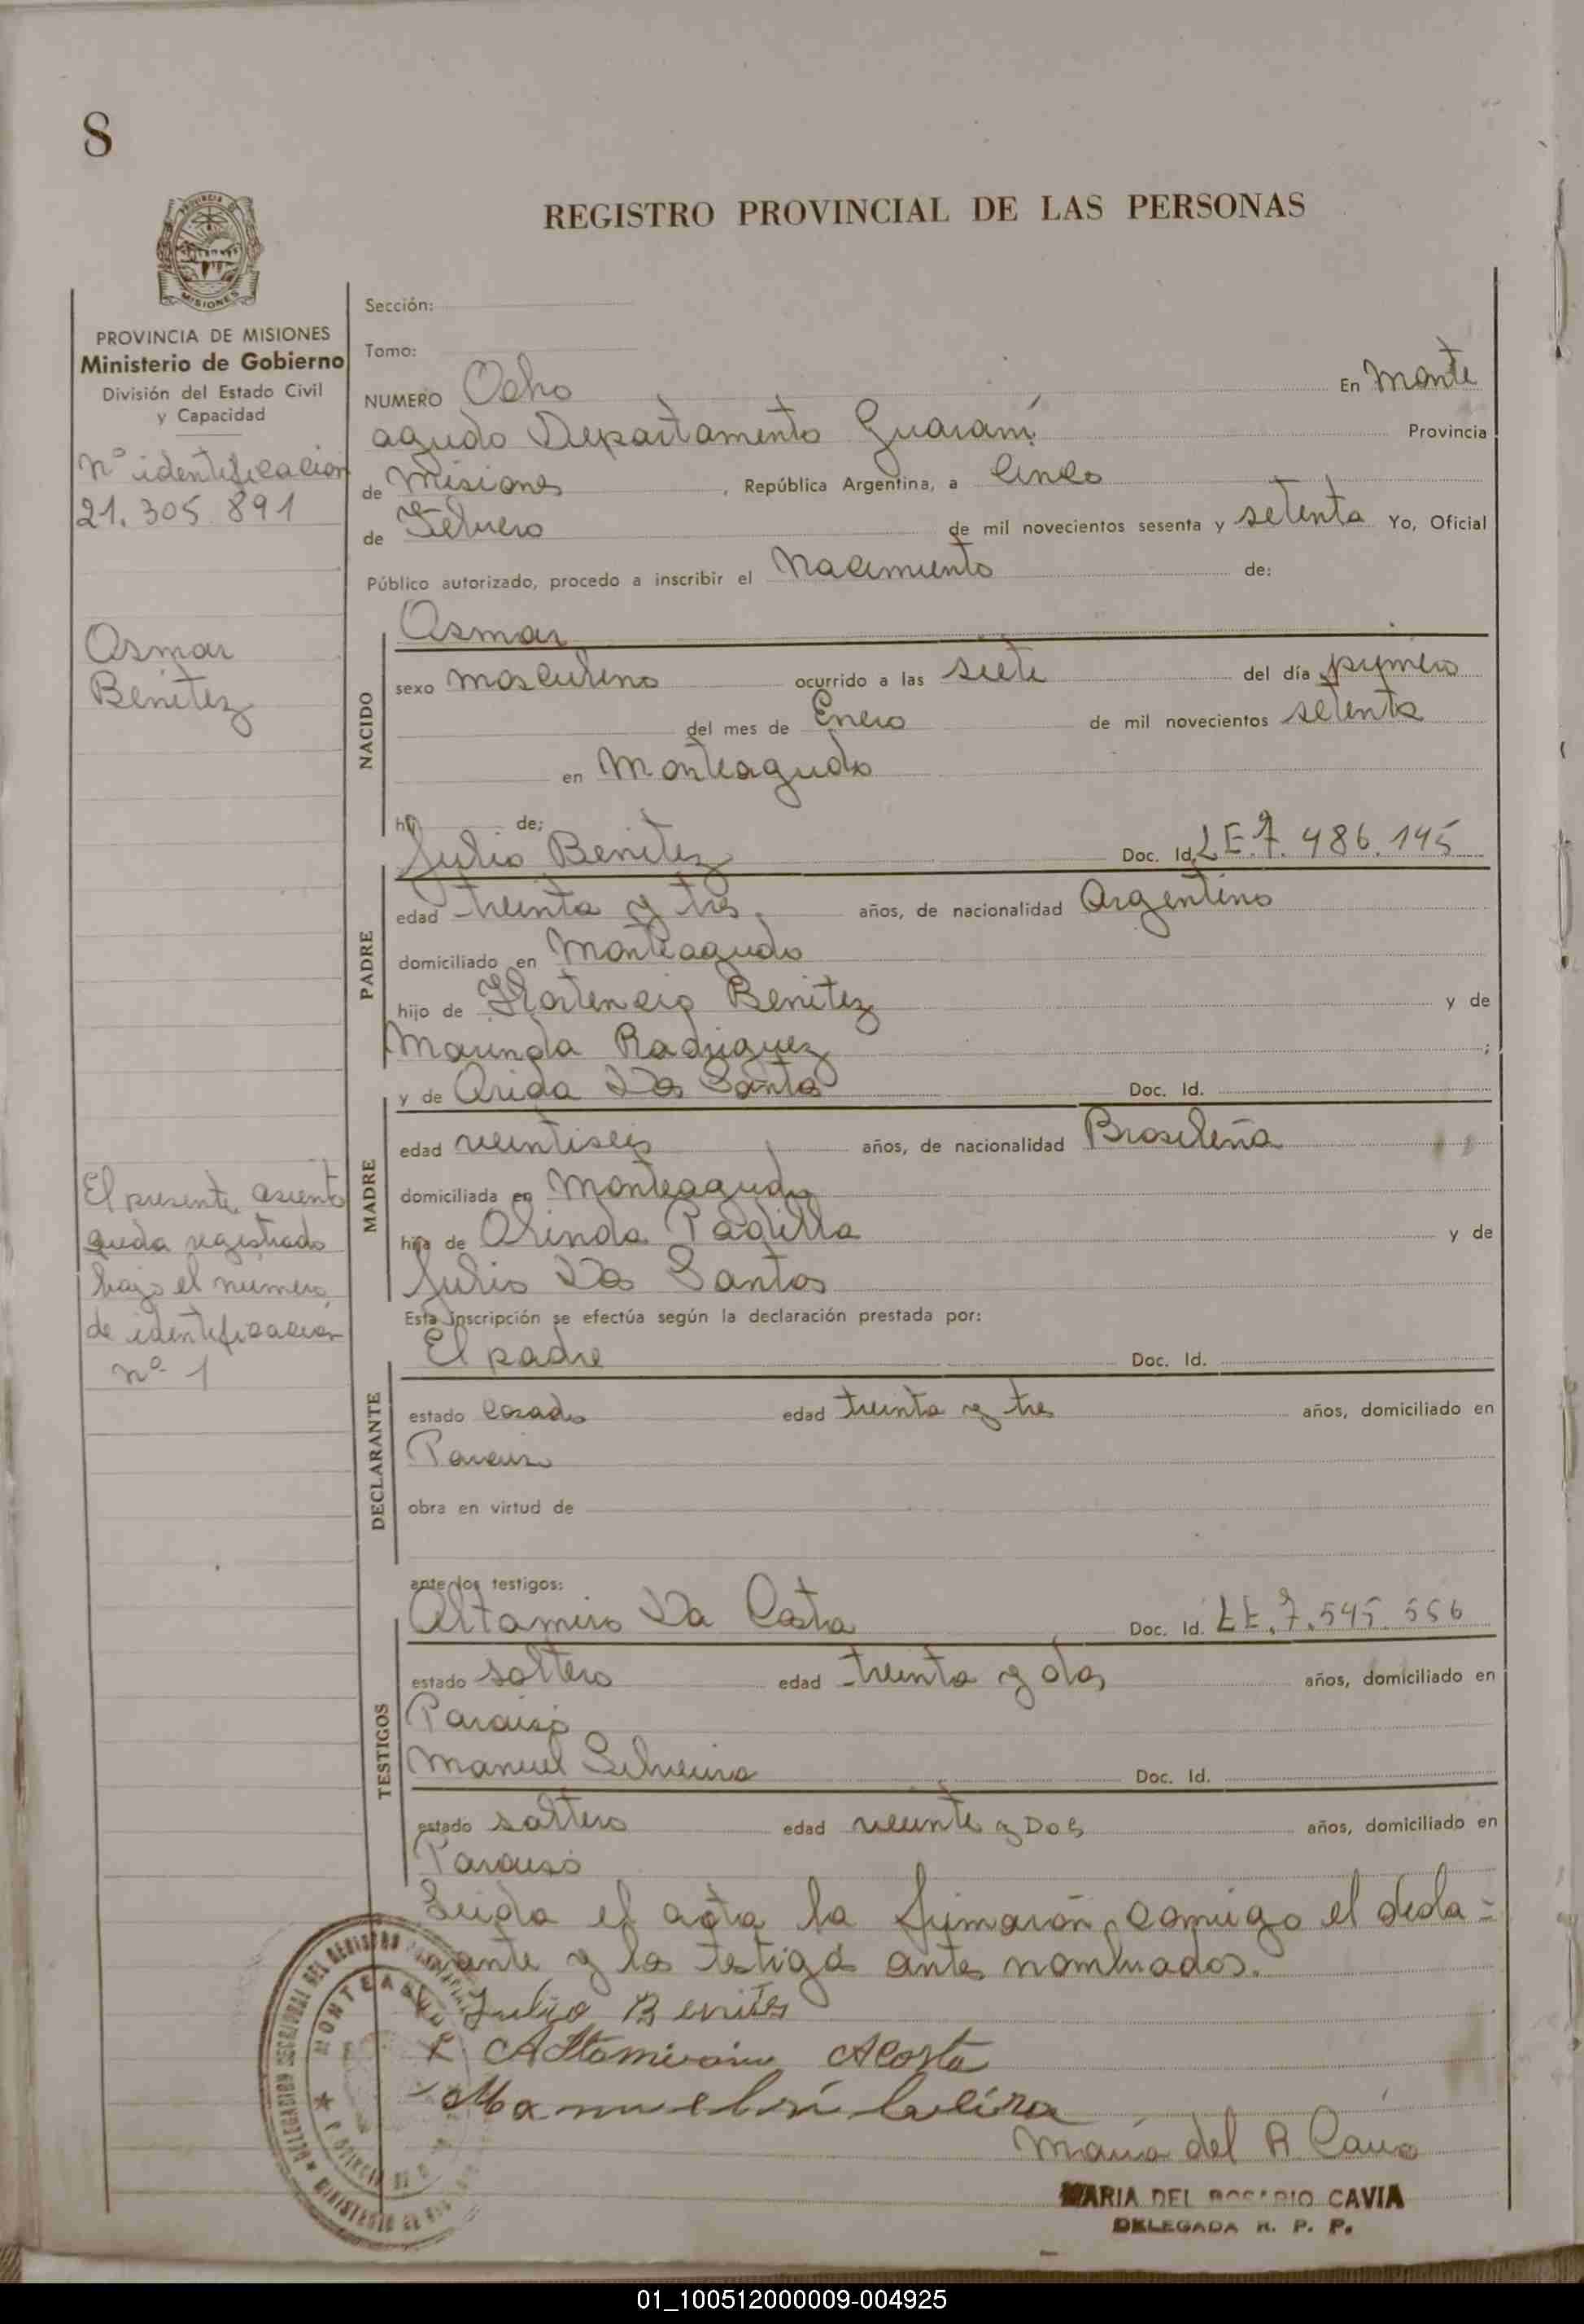 8
REGISTRO PROVINCIAL DE LAS PERSONAS
MISIONES
PROVINCIA DE MISIONES
Ministerio de Gobierno
División del Estado Civil
y Capacidad
nº identificacion
21.305.891
Osmar
Benitez
El presente asiento
queda registrado
bajo el número
de identificacion
nº 1
Sección:
Tomo:
NUMERO Ocho En Monte
agudo Departamento Guaraní Provincia
de Misiones , República Argentina, a Cinco
de Febrero de mil novecientos sesenta y setenta Yo, Oficial
Público autorizado, procedo a inscribir el Nacimiento de:
NACIDO
Osmar
sexo masculino ocurrido a las siete del día primero
del mes de Enero de mil novecientos setenta
en Monteagudo
hij de:
PADRE
Julio Benitez Doc. Id. LE.7.486.145
edad treinta y tres años, de nacionalidad Argentino
domiciliado en Monteagudo
hijo de Hortencio Benitez y de
Marinda Rodriguez ;
MADRE
y de Orida Dos Santos Doc. Id.
edad veintiseis años, de nacionalidad Brasileña
domiciliada en Monteagudo
hija de Olinda Padilla y de
Julio Dos Santos
Esta inscripción se efectúa según la declaración prestada por:
DECLARANTE
El padre Doc. Id.
estado casado edad treinta y tres años, domiciliado en
obra en virtud de
ante los testigos:
TESTIGOS
Altamiro Da Costa Doc. Id. LE.7.545.556
estado soltero edad treinta y dos años, domiciliado en
Paraiso
Manuel Silveira Doc. Id.
estado soltero edad veinte y Dos años, domiciliado en
Paraiso
Leida el acta la firmarón comigo el decla=
rante y los testigos antes nombrados.
Julio Benites
Acosta
Maria del R Cavia
MARIA DEL ROSARIO CAVIA
DELEGADA R. P. P.
01_100512000009-004925